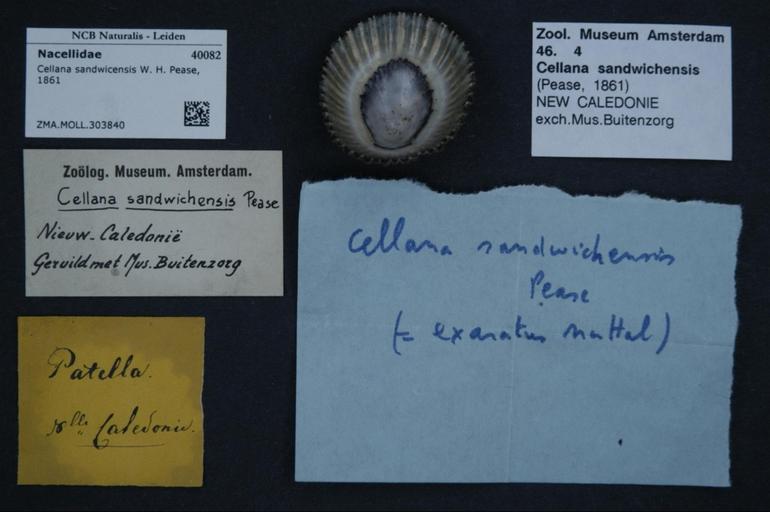 NCB Naturalis - Leiden
Nacellidae 40082
Cellana sandwicensis W. H. Pease,
1861
ZMA.MOLL.303840
Zool. Museum Amsterdam
46. 4
Cellana sandwichensis
(Pease, 1861)
NEW CALEDONIE
exch.Mus.Buitenzorg
Zoölog. Museum. Amsterdam.
Cellana sandwichensis Pease
Nieuw-Caledonië
Geruild met Mus. Buitenzorg
Cellana sandwichensis
Pease
(= exaratus Nuttal)
Patella.
Nlle Caledonie.